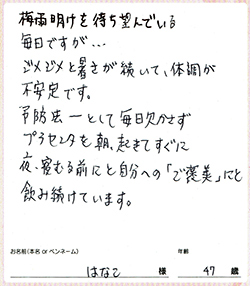 梅雨明けを待ち望んでいる
毎日ですが…
ジメジメと暑さが続いて、体調が
不安定です。
予防法一として毎日欠かさず
プラセンタを朝、起きてすぐに
夜、寝る前にと自分への「ご褒美」にと
飲み続けています。
お名前(本名 or ペンネーム)
年齢
はなこ 様 47 歳